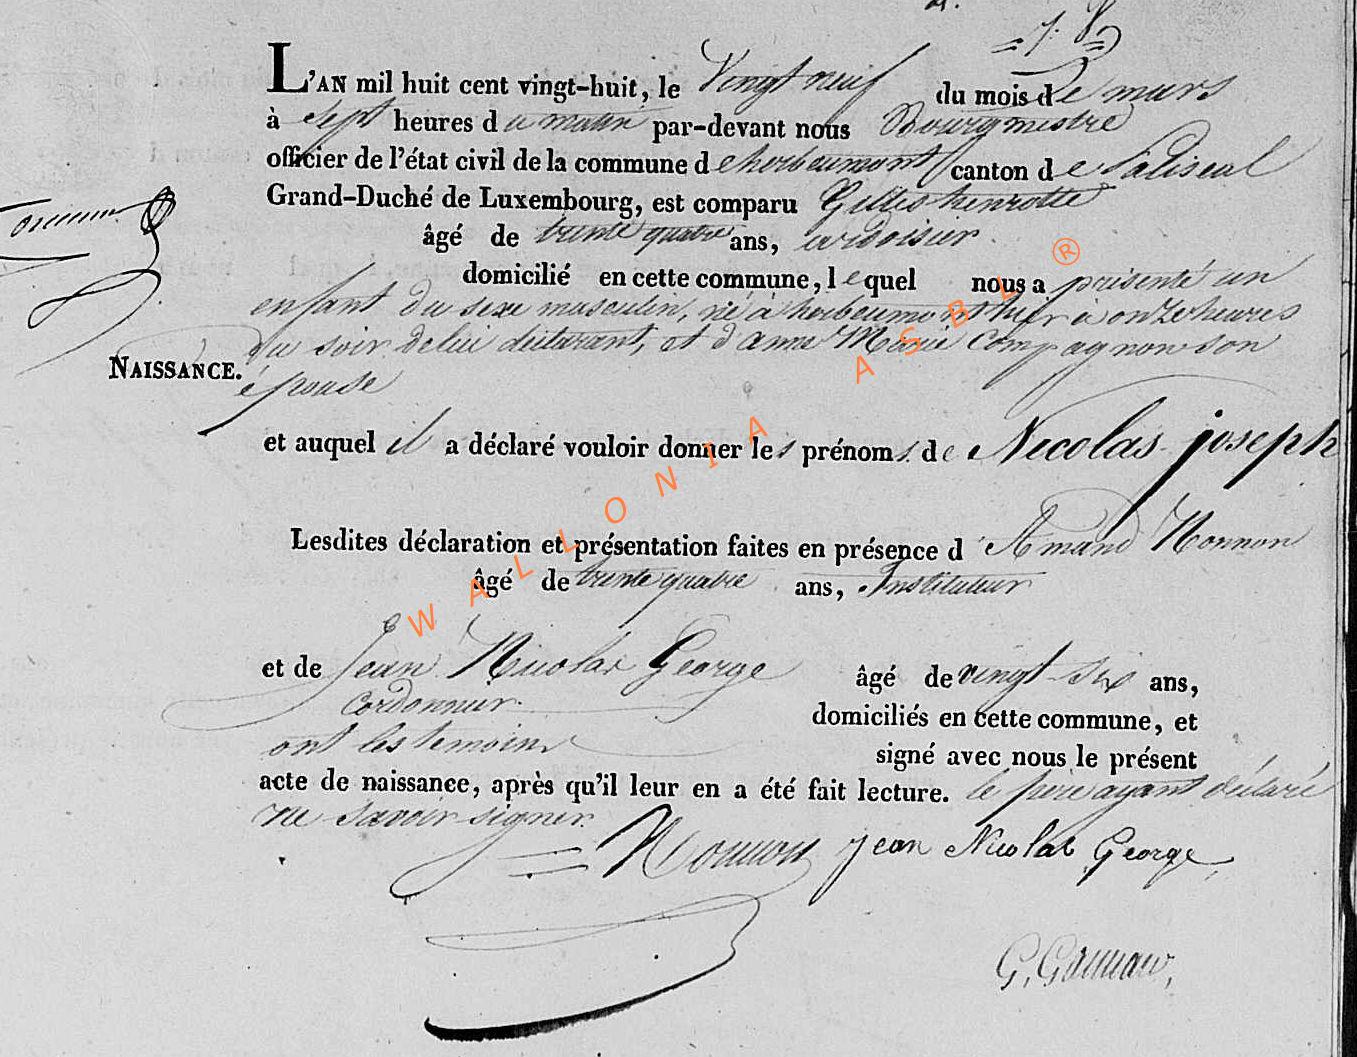 = 7. 8 =
L'AN mil huit cent vingt-huit, le Vingt neuf du mois de mars
à sept heures du matin par-devant nous Bourgmestre
officier de l'état civil de la commune de herbeumont canton de Paliseul
Grand-Duché de Luxembourg, est comparu Gilles henrotte
âgé de trente quatre ans, ardoisier
domicilié en cette commune, lequel nous a présenté un
enfant du sexe masculin, né à herbeumont hier à onze heures
du soir de lui déclarant, et d'anne Marie Compagnon son
NAISSANCE.
épouse
et auquel il a déclaré vouloir donner les prénoms de Nicolas joseph
Lesdites déclaration et présentation faites en présence d'Amand Monnon
âgé de trente quatre ans, Instituteur
et de Jean Nicolas George âgé de vingt-six ans,
Cordonnier
domiciliés en cette commune, et
ont les temoins
signé avec nous le présent
acte de naissance, après qu'il leur en a été fait lecture. le père ayant déclaré
ne savoir signer.
Monnon jean Nicolas George
WALLONIA ASBL ®